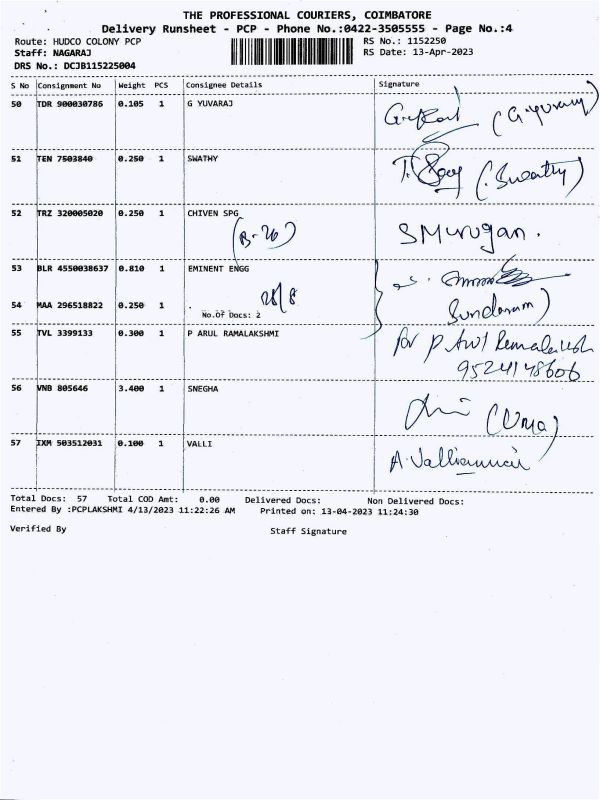 THE PROFESSIONAL COURIERS, COIMBATORE
Delivery Runsheet - PCP - Phone No.:0422-3505555 - Page No.:4
Route: HUDCO COLONY PCP RS No.: 1152250
Staff: NAGARAJ RS Date: 13-Apr-2023
DRS No.: DCJB115225004
S No Consignment No Weight PCS Consignee Details Signature
50 TDR 900030786 0.105 1 G YUVARAJ (G.yuvaraj)
51 TEN 7503840 0.250 1 SWATHY (Swathy)
52 TRZ 320005020 0.250 1 CHIVEN SPG SMurugan.
(B-26)
53 BLR 4550038637 0.810 1 EMINENT ENGG
54 MAA 296518822 0.250 1 . Sundaram)
No.Of Docs: 2
55 TVL 3399133 0.300 1 P ARUL RAMALAKSHMI for P Arul Ramalaksh
9524148606
56 VNB 805646 3.400 1 SNEGHA (Uma)
57 IXM 503512031 0.100 1 VALLI A.Valliammai
Total Docs: 57 Total COD Amt: 0.00 Delivered Docs: Non Delivered Docs:
Entered By :PCPLAKSHMI 4/13/2023 11:22:26 AM Printed on: 13-04-2023 11:24:30
Verified By Staff Signature